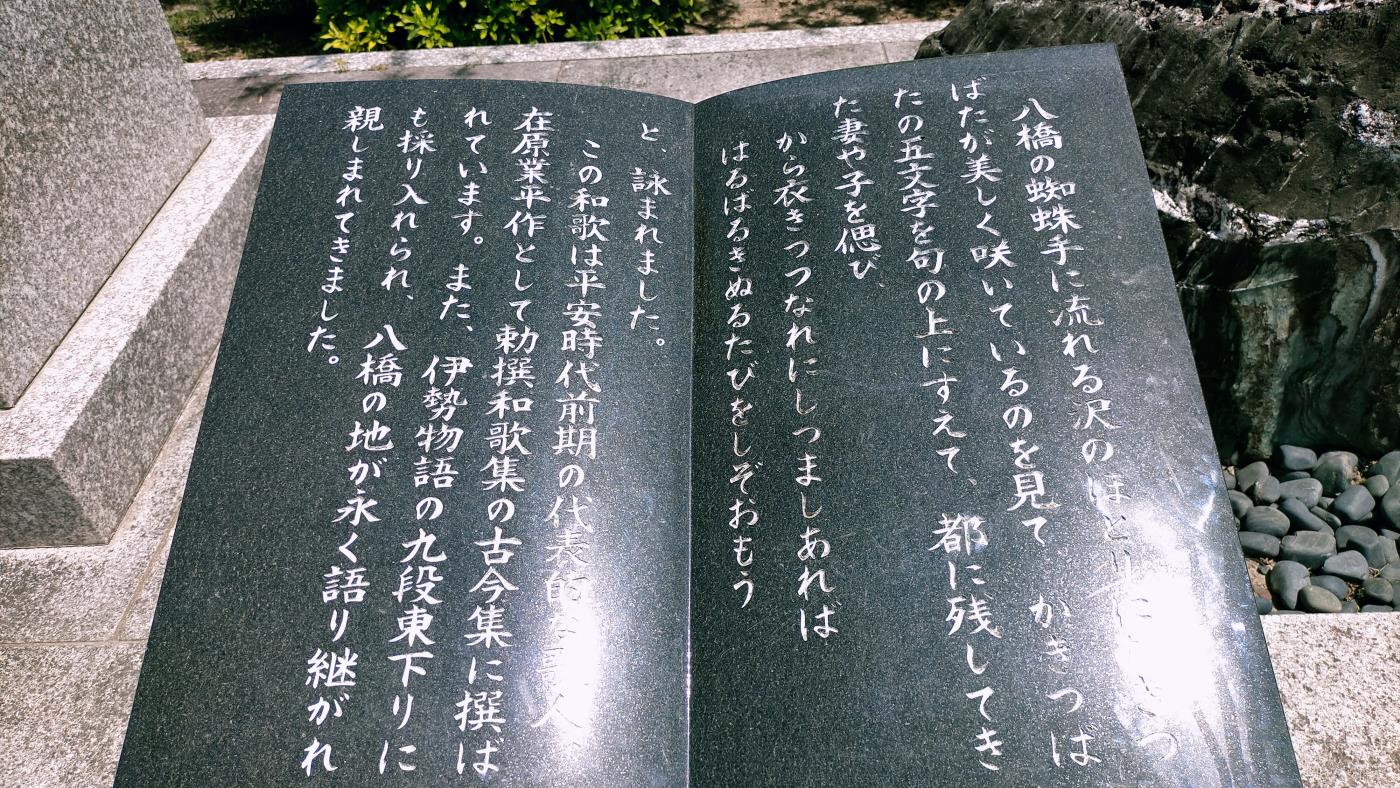 八橋の蜘蛛手に流れる沢のほとりに
ばたが美しく咲いているのを見て。かきつば
たの五文字を句の上にすえて、都に残してき
た妻や子を偲び、
から衣きつつなれにしつましあれば
はるばるきぬるたびをしぞおもう
と、詠まれました。
この和歌は平安時代前期の代表的な歌人、
在原業平作として勅撰和歌集の古今集に撰ば
れています。また、伊勢物語の九段東下りに
も採り入れられ、八橋の地が永く語り継がれ
親しまれてきました。